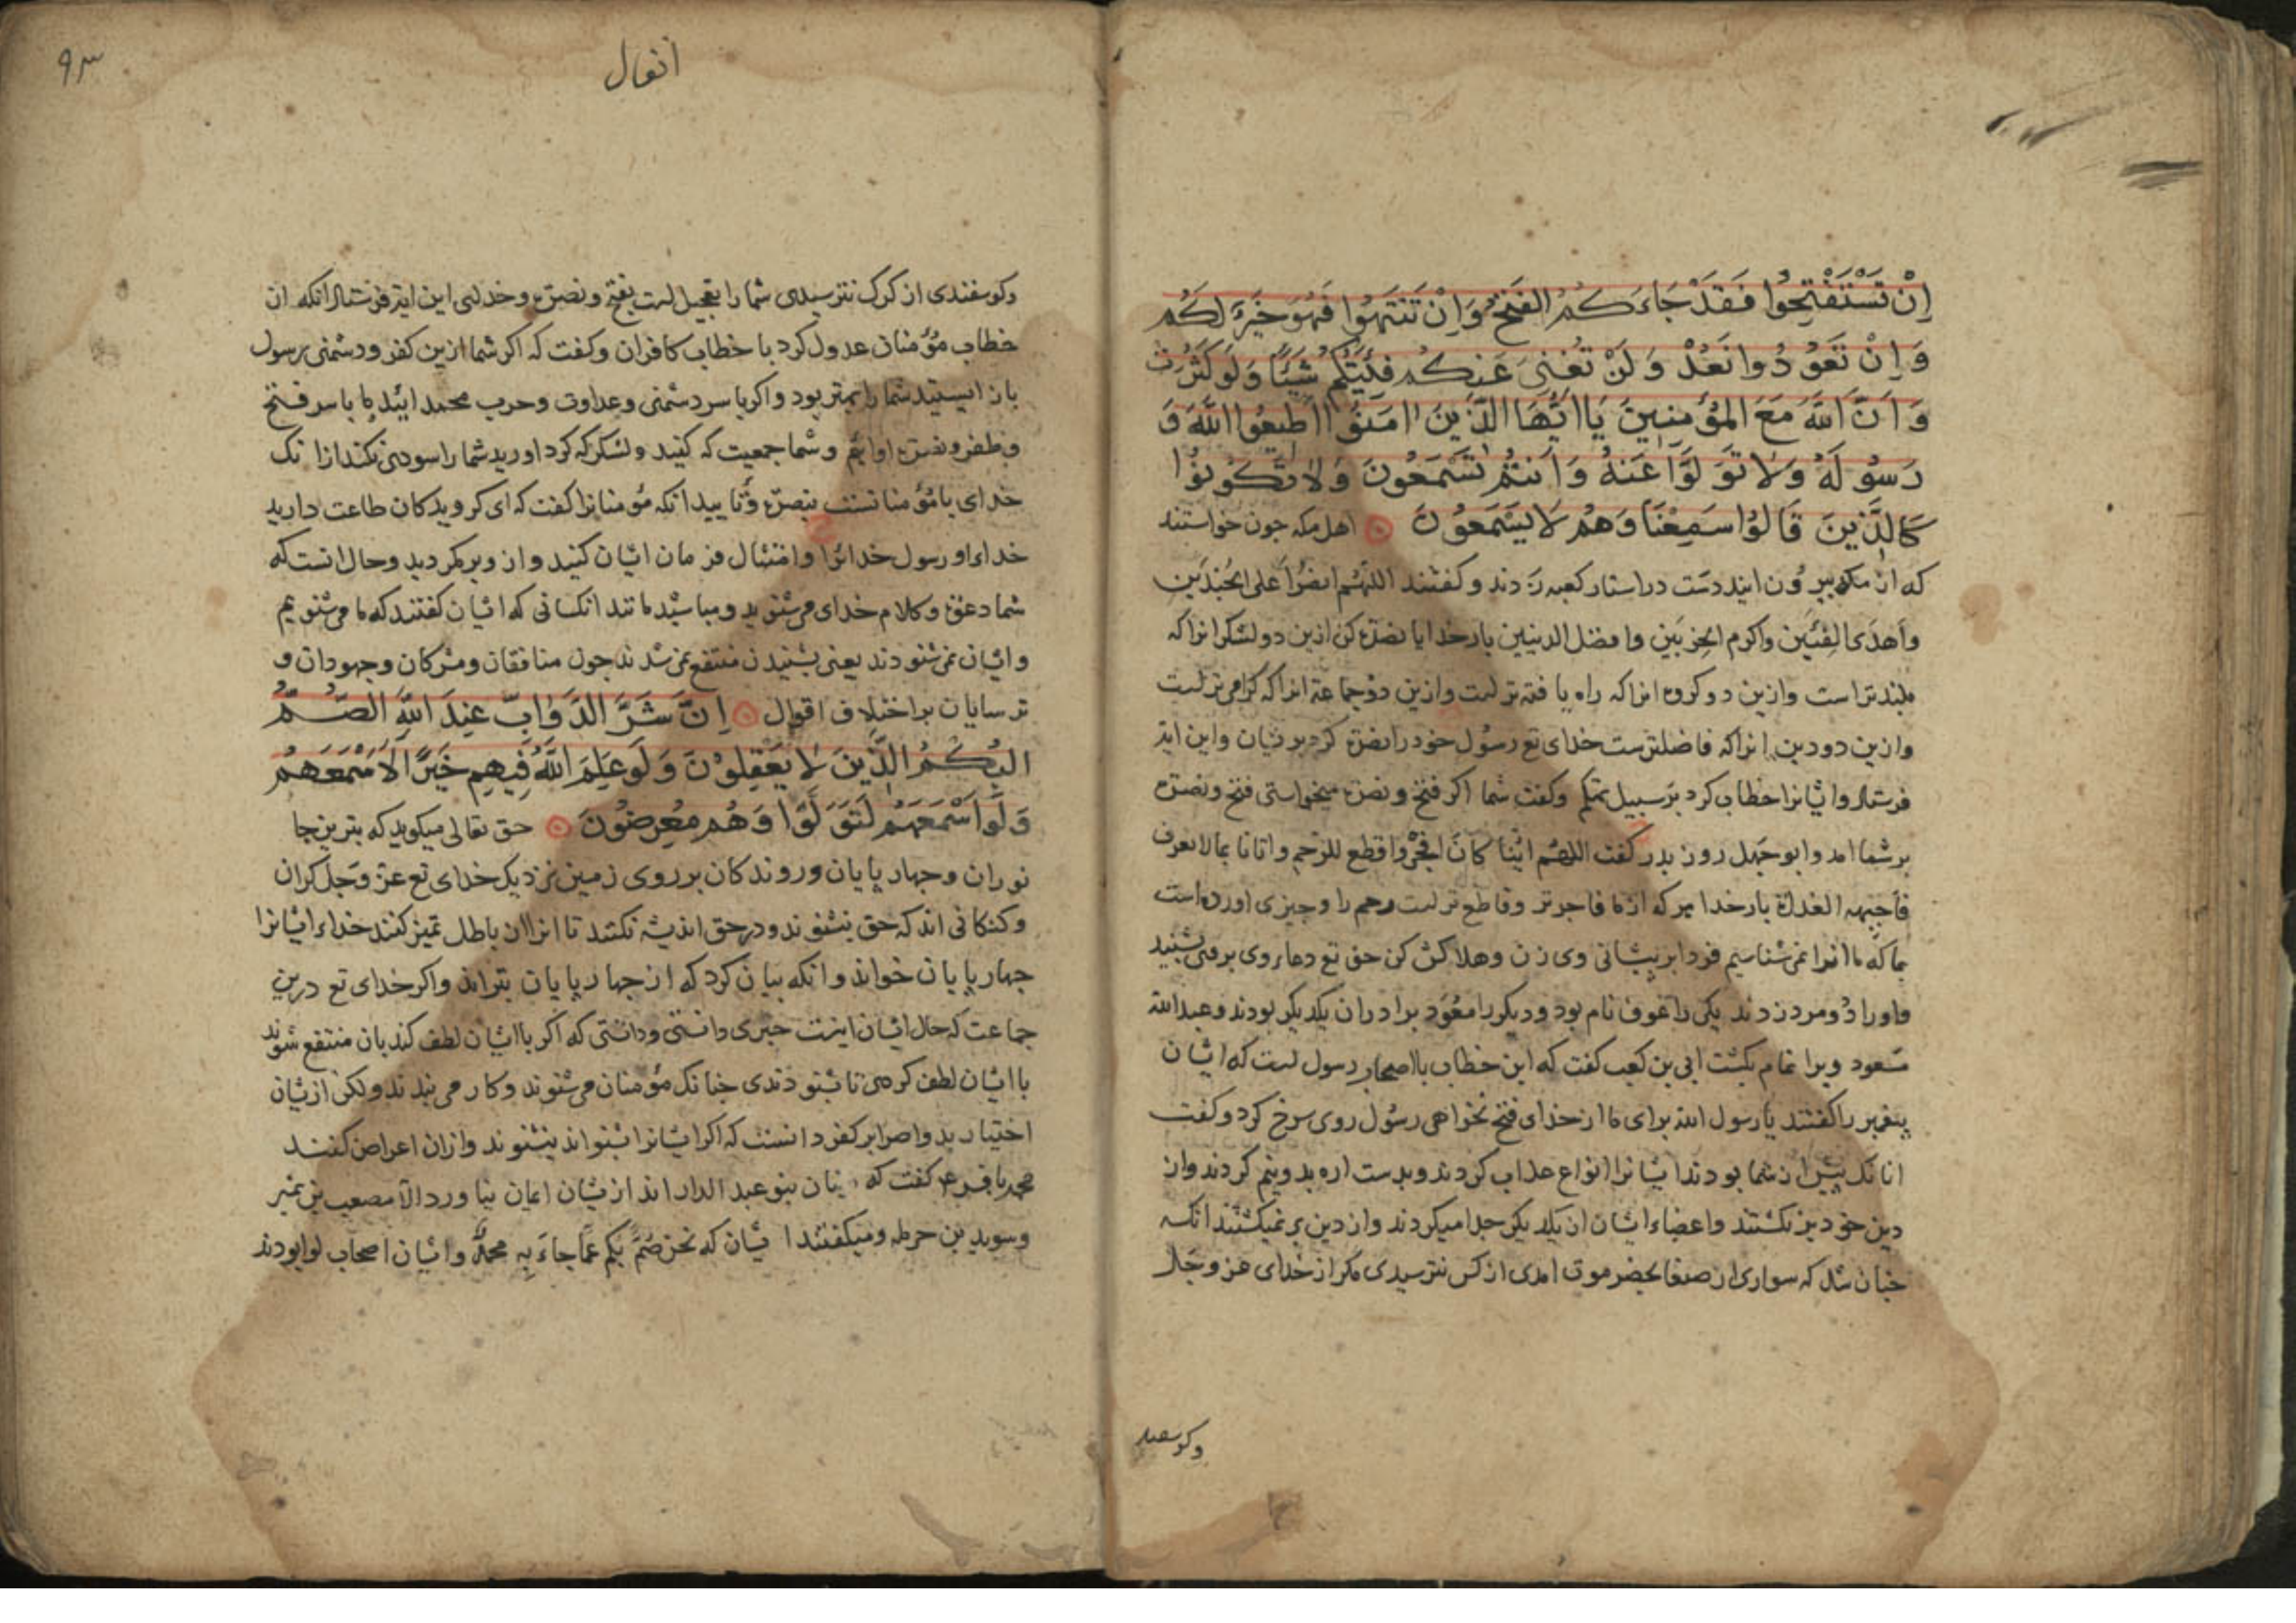 اِنْ تَسْتَفْتِحُوا فَقَدْ جَاءَكُمُ الفَتْحُ وَاِنْ تَنْتَهُوا فَهُوَ خَيْرٌ لَكُمْ
وَاِنْ تَعُوْدُوا نَعُدْ وَلَنْ تُغْنِىَ عَنْكُم فِئَتُكُمْ شَيْئًا وَلَوْ كَثُرَتْ
وَاَنَّ اللّٰهَ مَعَ المُؤْمِنِينَ يَا اَيُّهَا الَّذِينَ اٰمَنُوْا اَطِيعُوا اللّٰهَ وَ
رَسُوْلَهُ وَلَا تَوَلَّوْا عَنْهُ وَاَنْتُمْ تَسْمَعُونَ وَلَا تَكُونُوْا
كَالَّذِينَ قَالُوْا سَمِعْنَا وَهُمْ لَا يَسْمَعُوْنَ اهل مكه جون خواستند
كه از مكه بيرون ايند دست در استار كعبه زدند و كفتند اللهم انصر اعلى الجندين
واهدى الفئتين واكرم الحزبين وافضل الدينين بار خدايا نصرة كن ازين دو لشكر انرا كه
بلندتر است وازين دو كروه انرا كه راه يافته تر است وازين دو جماعة انرا كه كرامى تر است
وازين دو دين انرا كه فاضلترست خداى تع رسول خود را نصرة كرد بريشان واين اية
فرستاد وايشانرا خطاب كرد بر سبيل تهكم وكفت شما اكر فتح ونصرة ميخواستى فتح ونصرة
بر شما امد وابو جهل روز بدر كفت اللهم اينا كان افجر واقطع للرحم واتانا بما لا نعرف
فاجبهه الغداة بار خدا هر كه از ما فاجرتر وقاطع تر است رحم را وجيزى اورده است
بما كه ما انرا نمى شناسيم فردا بر پيشانى وى زن وهلاكش كن حق تع دعاء وى بر وى بشنيد
واورا دو مرد زدند يكى را عوف نام بود وديكر را معوذ برادران يكديكر بودند وعبد الله
مسعود ويرا تمام بكشت ابى بن كعب كفت كه اين خطاب با اصحاب رسول است كه ايشان
پيغمبر را كفتند يا رسول الله براى ما از خداى فتح نخواهى رسول روى سرخ كرد وكفت
انانك پيش از شما بودند ايشانرا انواع عذاب كردند وبدست اره بدو نيم كردند واز
دين خود برنكشتند واعضاء ايشان از يكديكر جدا ميكردند واز دين بر نميكشتند انكه
جنان شد كه سوارى از صنعا بحضرموت امدى از كس نترسيدى مكر از خداى عز وجل
وكوسفند
٩٣
انفال
وكوسفندى از كرك نترسيدى شما را تعجيل است بفتح ونصرة وخداى اين اية فرستاد انكه از
خطاب مؤمنان عدول كرد با خطاب كافران وكفت كه اكر شما ازين كفر ودشمنى رسول
باز ايستيد شما را بهتر بود واكر با سر دشمنى وعداوت وحرب محمد ائيد ما با سر فتح
وظفر ونصرة او ائيم وشما جمعيت كه كنيد ولشكر كه كرد اوريد شما را سودى نكند ازانك
خداى با مؤمنانست بنصرة وتاييد انكه مؤمنانرا كفت كه اى كرويدكان طاعت داريد
خداء او رسول خدائرا وامتثال فرمان ايشان كنيد واز وى برمكرديد وحال انست كه
شما دعوة وكلام خداى مى شنويد ومباشيد مانند انكسانى كه ايشان كفتند كه ما مى شنويم
وايشان نمى شنودند يعنى بشنيدن منتفع نمى شدند جون منافقان ومشركان وجهودان و
ترسايان بر اختلاف اقوال اِنَّ شَرَّ الدَّوَابِّ عِنْدَ اللّٰهِ الصُّمُّ
البُكْمُ الَّذِينَ لَا يَعْقِلُوْنَ وَلَوْ عَلِمَ اللّٰهُ فِيهِمْ خَيْرًا لَاَسْمَعَهُمْ
وَلَوْ اَسْمَعَهُمْ لَتَوَلَّوْا وَهُمْ مُعْرِضُونَ حق تعالى ميكويد كه بترين جا
نوران وجهار پايان وروندكان بر روى زمين نزديك خداى تع عز وجل كران
وكنكانى اند كه حق نشنوند ودر حق انديشه نكنند تا انرا از باطل تميز كنند خداء ايشانرا
جهار پايان خواند وانكه بيان كرد كه از جهار پايان بتراند واكر خداى تع درين
جماعت كه حال ايشان اينست خيرى دانستى ودانستى كه اكر با ايشان لطف كند بان منتفع شوند
با ايشان لطف كردى تا بشنودندى جنانك مؤمنان مى شنوند وكار مى بندند ولكن ازيشان
اختيار بد واصرار بر كفر دانست كه اكر ايشانرا بشنواند نشنوند وازان اعراض كنند
محمد باقر ع كفت كه اينان بنو عبد الدار اند ازيشان ايمان نياورد الا مصعب بن عمير
وسويد بن حرمله وميكفتند ايشان كه نحن صم بكم عما جاء به محمد وايشان اصحاب لوا بودند